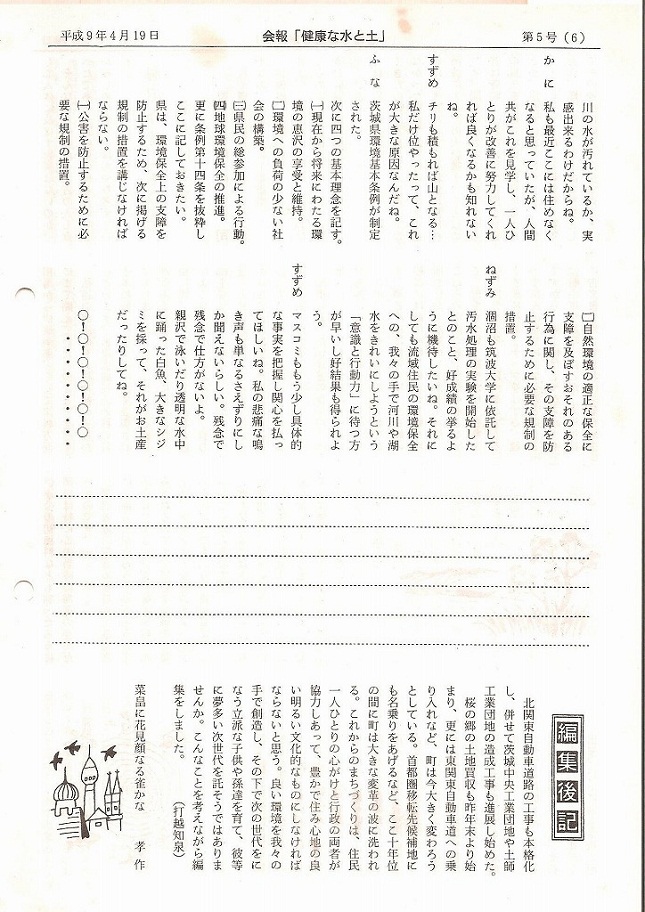 平成9年4月19日
会報「健康な水と土」
第5号(6)
川の水が汚れているか、実
感出来るわけだからね。
かに
私も最近ここには住めなく
なると思っていたが、人間
共がこれを見学し、一人ひ
とりが改善に努力してくれ
れば良くなるかも知れない
ね。
すずめ
チリも積もれば山となる…
私だけ位やったって、これ
が大きな原因なんだね。
ふな
茨城県環境基本条例が制定
された。
次に四つの基本理念を記す。
㈠現在から将来にわたる環
境の恵沢の享受と維持。
㈡環境への負荷の少ない社
会の構築。
㈢県民の総参加による行動。
㈣地球環境保全の推進。
更に条例第十四条を抜粋し
ここに記しておきたい。
県は、環境保全上の支障を
防止するため、次に掲げる
規制の措置を講じなければ
ならない。
㈠公害を防止するために必
要な規制の措置。
㈡自然環境の適正な保全に
支障を及ぼすおそれのある
行為に関し、その支障を防
止するために必要な規制の
措置。
ねずみ
涸沼も筑波大学に依託して
汚水処理の実験を開始した
とのこと、好成績の挙るよ
うに機待したいね。それに
しても流域住民の環境保全
への、我々の手で河川や湖
水をきれいにしようという
「意識と行動力」に待つ方
が早いし好結果も得られよ
う。
すずめ
マスコミももう少し具体的
な事実を把握し関心を払っ
てほしいね。私の悲痛な鳴
き声も単なるさえずりにし
か聞えないらしい。残念で
残念で仕方がないよ。
親沢で泳いだり透明な水中
に踊った白魚、大きなシジ
ミを採って、それがお土産
だったりしてね。
〇!〇!〇!〇!〇!〇
・・・・・・・・・・
編集後記
北関東自動車道路の工事も本格化
し、併せて茨城中央工業団地や土師
工業団地の造成工事も進展し始めた。
桜の郷の土地買収も昨年末より始
まり、更には東関東自動車道への乗
り入れなど、町は今大きく変わろう
としている。首都圏移転先候補地に
も名乗りをあげるなど、ここ十年位
の間に町は大きな変革の波に洗われ
る。これからのまちづくりは、住民
一人ひとりの心がけと行政の両者が
協力しあって、豊かで住み心地の良
い明るい文化的なものにしなければ
ならないと思う。良い環境を我々の
手で創造し、その下で次の世代をに
なう立派な子供や孫達を育て、彼等
に夢多い次世代を託そうではありま
せんか。こんなことを考えながら編
集をしました。
(打越知泉)
菜畠に花見顔なる雀かな
孝作